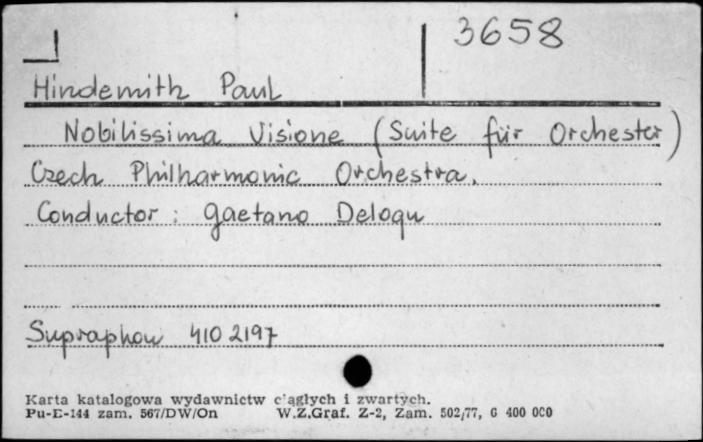 3658
Hindemith Paul
Nobilissima Visione (Suite für Orchester)
Czech Philharmonic Orchestra.
Conductor: Gaetano Delogu
Supraphon 410 2197
Karta katalogowa wydawnictw ciągłych i zwartych.
Pu-E-144 zam. 567/DW/On W.Z.Graf. Z-2, Zam. 502/77, G 400 000